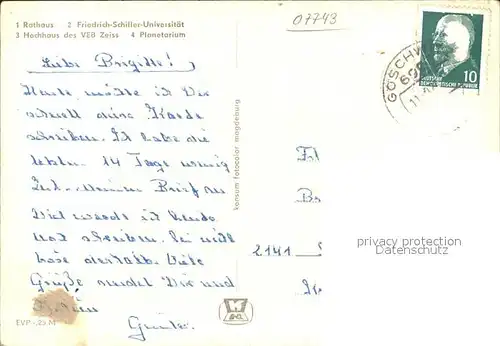 1 Rathaus 2 Friedrich-Schiller-Universität
3 Hochhaus des VEB Zeiss 4 Planetarium
07743
GÖSCHW
69
11
10
DEUTSCHE
DEMOKRATISCHE REPUBLIK
Liebe Brigitte!
Heute möchte ich Dir
schnell eine Karte
schreiben. Ich habe die
letzten 14 Tage wenig
Zeit einen Brief zu
Viel werde ich heute
schreiben. Sei nicht
böse deshalb. Viele
Grüße sendet Dir und
konsum fotocolor magdeburg
2141
privacy protection
Datenschutz
EVP -,25 M